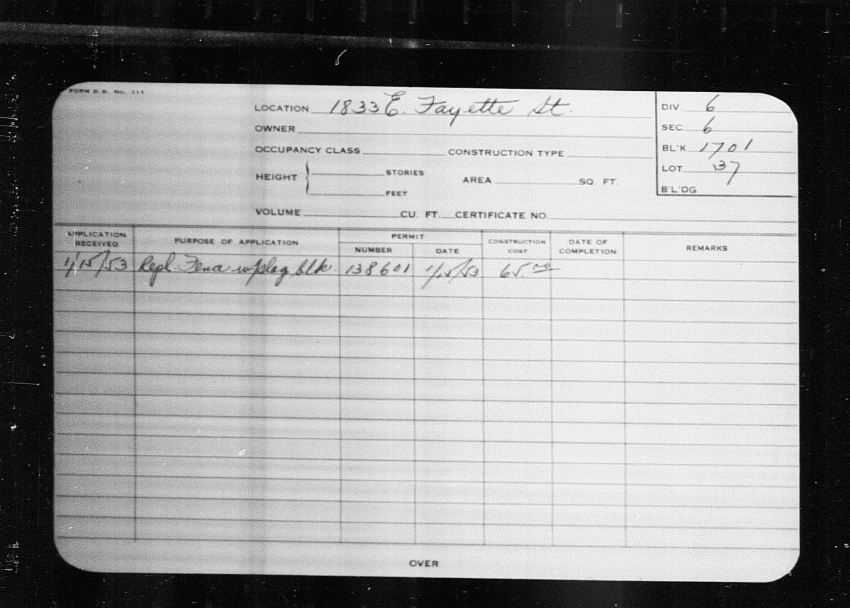 FORM D.B. No. 111
LOCATION 1833 E. Fayette St.
OWNER
OCCUPANCY CLASS CONSTRUCTION TYPE
HEIGHT STORIES FEET AREA SQ. FT.
VOLUME CU. FT. CERTIFICATE NO.
DIV. 6
SEC 6
BL'K 1701
LOT 37
B'L'DG
APPLICATION RECEIVED PURPOSE OF APPLICATION PERMIT NUMBER DATE CONSTRUCTION COST DATE OF COMPLETION REMARKS
1/15/53 Repl. Fence w/slag blk. 138601 1/15/53 65.00
OVER